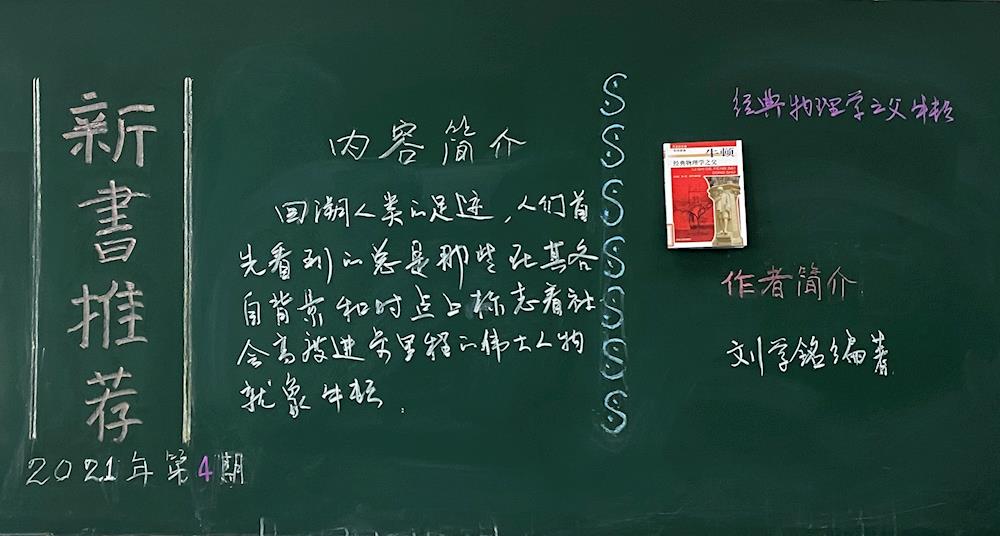 新書推荐
2021年第4期
内容简介
回溯人类的足迹,人们首
先看到的总是那些在其各
自背景和时点上标志着社
会高度进步里程的伟大人物
就象牛顿.
经典物理学之父牛顿
牛顿
经典物理学之父
作者简介
刘学铭编著